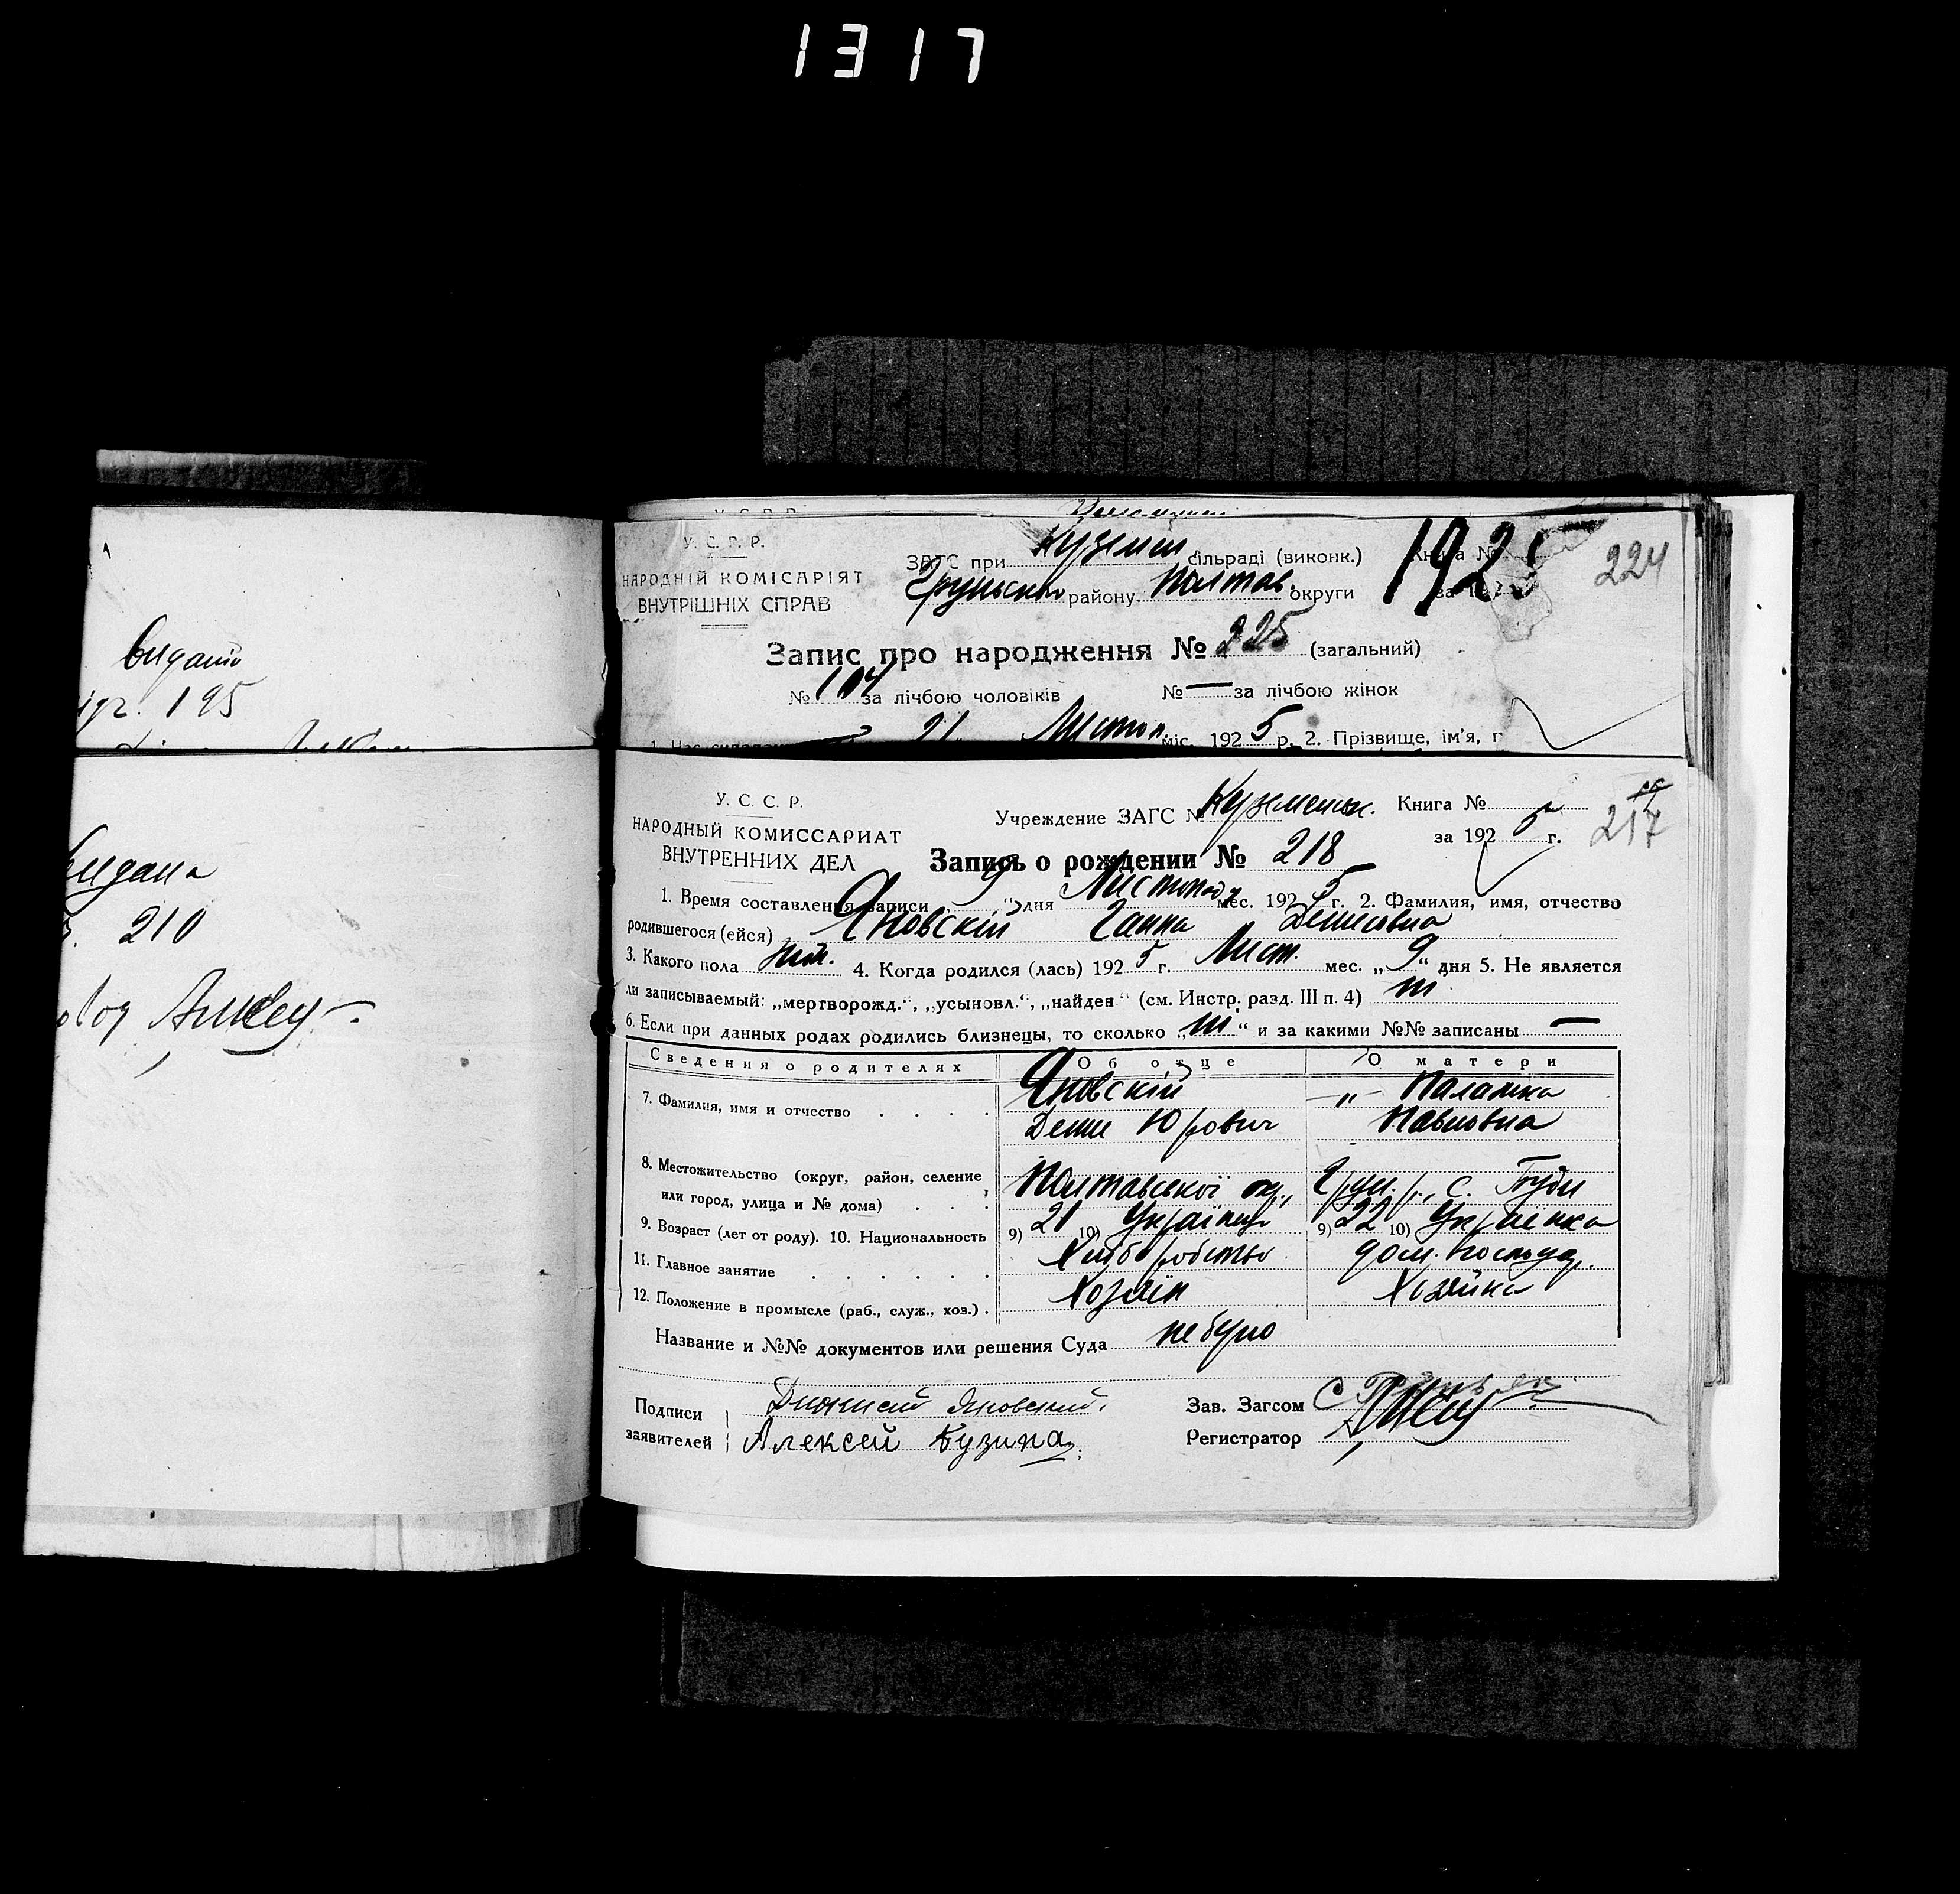 1317
видано
195
У. С. Р. Р.
НАРОДНІЙ КОМІСАРІЯТ
ВНУТРІШНІХ СПРАВ
ЗАГС при Куземен. сільраді (виконк.)
Книга №
1925
224
Грунсько району Полтав. округи
Запис про народження № 225 (загальний)
№ 104 за лічбою чоловіків № — за лічбою жінок
21 Листоп. міс. 1925 р. 2. Прізвище, ім'я,
видана
210
У. С. С. Р.
НАРОДНЫЙ КОМИССАРИАТ
ВНУТРЕННИХ ДЕЛ
Учреждение ЗАГС № Книга №
за 1925 г.
217
Запись о рождении № 218
1. Время составления записи „9“ дня Листопаду мес. 1925 г. 2. Фамилия, имя, отчество
родившегося (ейся) Яновскій Ганна Денисовна
3. Какого пола жін. 4. Когда родился (лась) 1925 г. Лист. мес. „9“ дня 5. Не является
ли записываемый: „мертворожд.“, „усыновл.“, „найден“ (см. Инстр. разд. III п. 4) ні
6. Если при данных родах родились близнецы, то сколько „ні“ и за какими №№ записаны —
Сведения о родителях Об отце О матери
7. Фамилия, имя и отчество . . . . Яновскій —„— Палажка
Денис Юрович Павловна
8. Местожительство (округ, район, селение
или город, улица и № дома) . . . Полтавської ок., Грун. р., с.
9. Возраст (лет от роду). 10. Национальность 9) 21 10) Українець 9) 22 10) Українка
11. Главное занятие . . . . . . Хліборобство дом. господар.
12. Положение в промысле (раб., служ., хоз.) . Хозяїн Хозяйка
Название и №№ документов или решения Суда не було
Подписи
заявителей
Дионисий Яновский.
Алексей Кузипа
Зав. Загсом
Регистратор